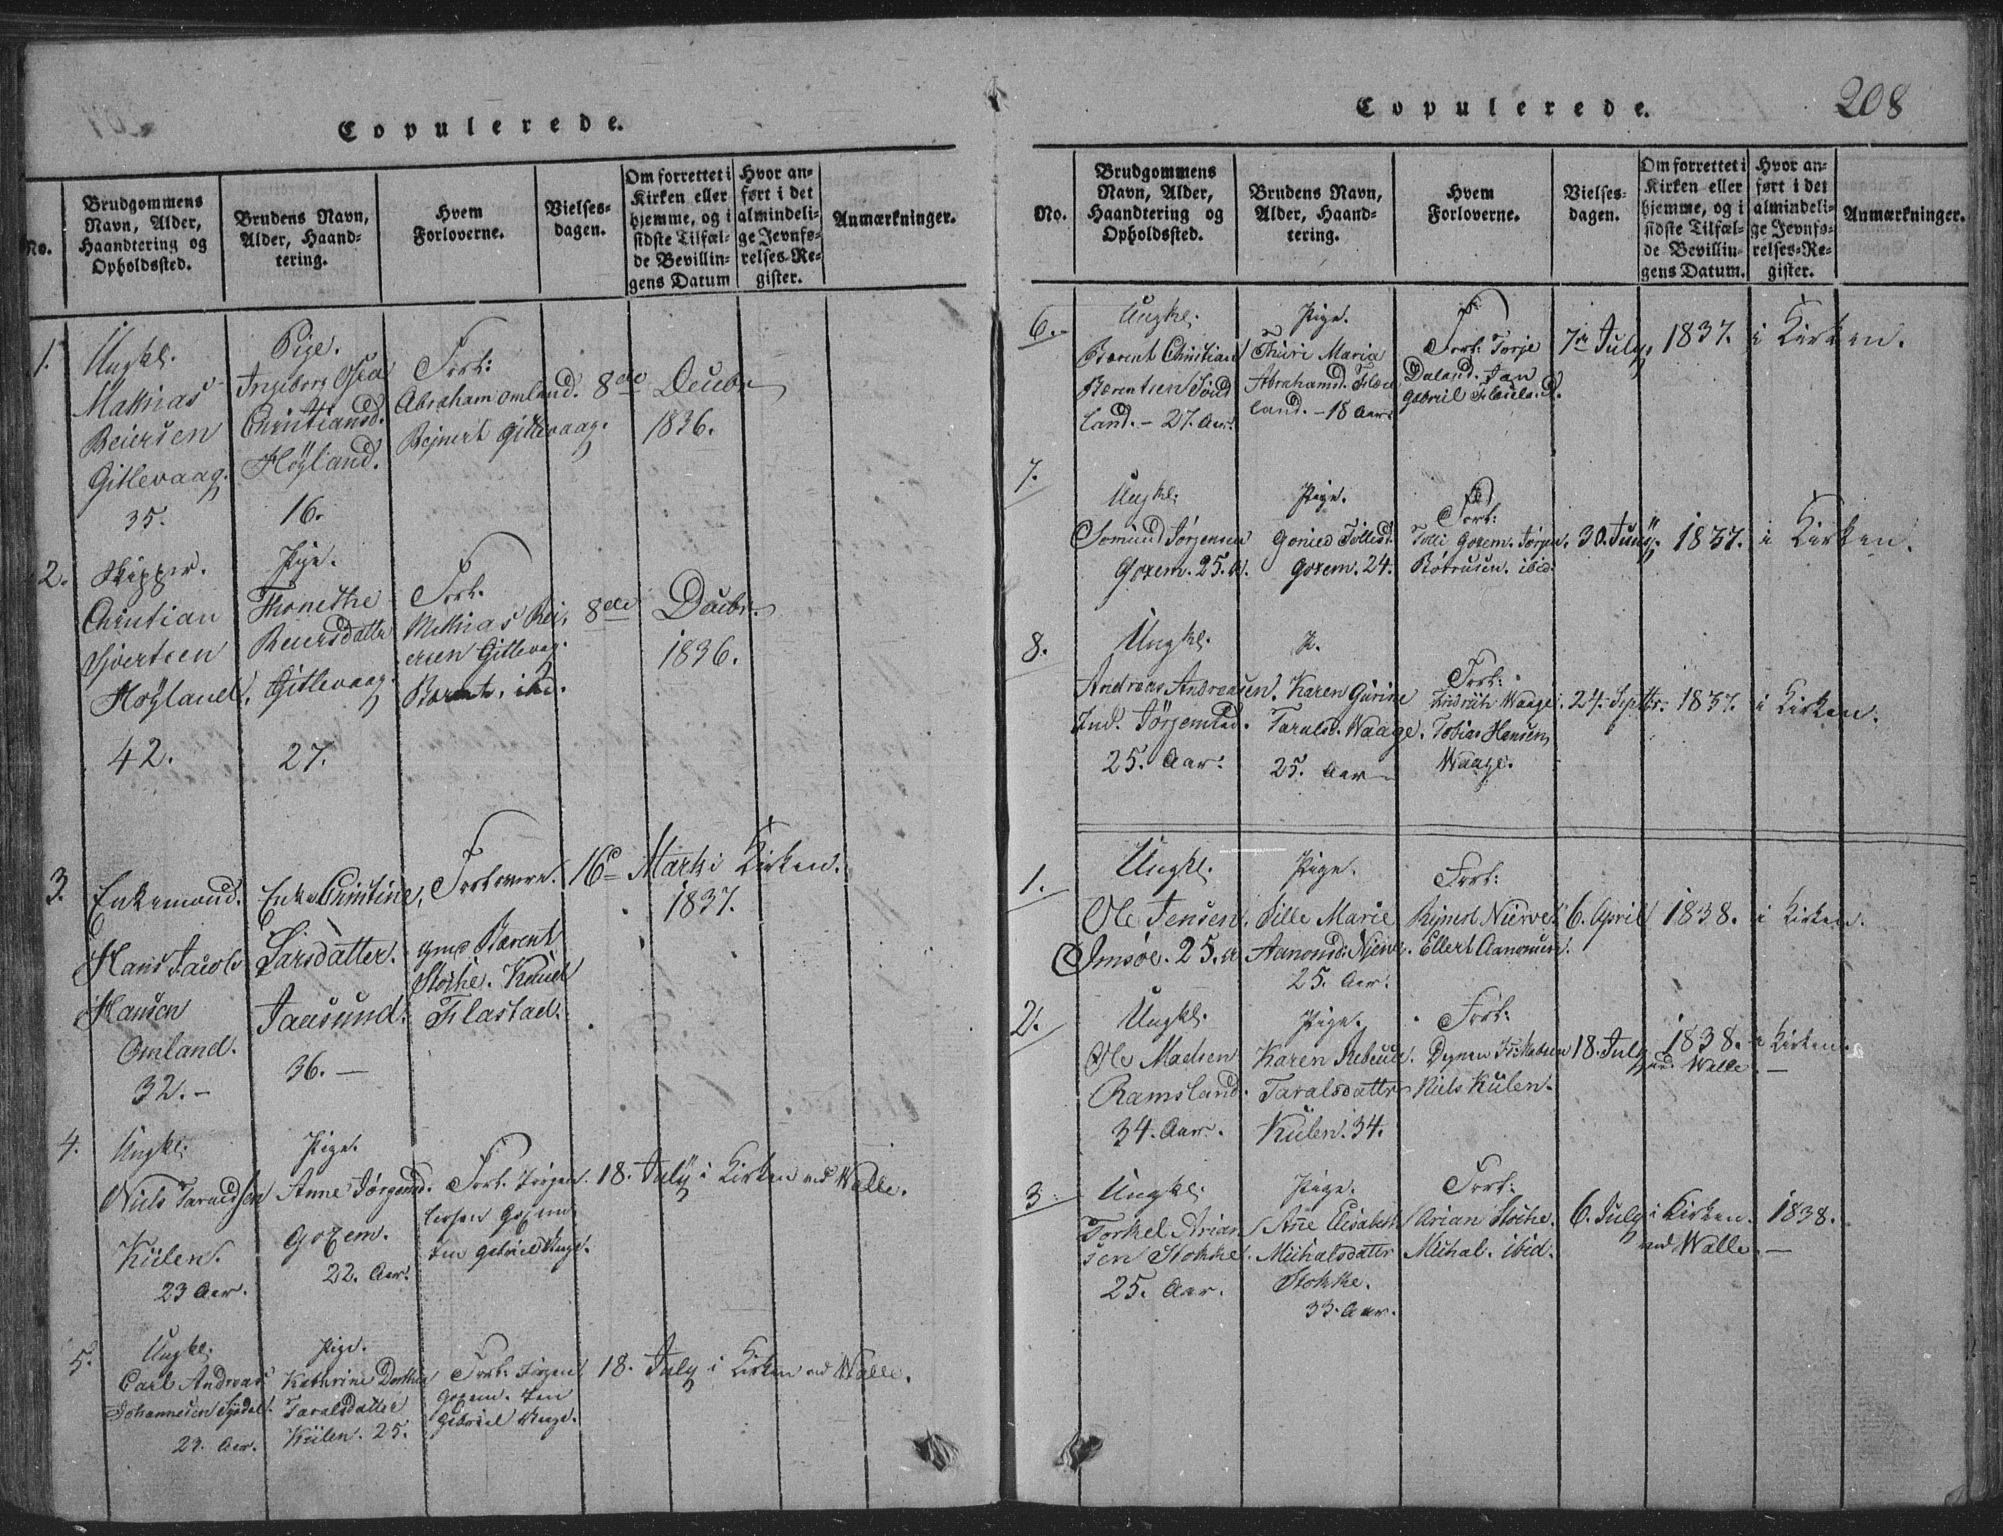 Copulerede.
No.
Brudgommens
Navn, Alder,
Haandtering og
Opholdssted.
Brudens Navn,
Alder, Haand-
tering.
Hvem
Forloverne.
Vielses-
dagen.
Om forrettet i
Kirken eller
hjemme, og i
sidste Tilfæl-
de Bevillin-
gens Datum
Hvor an-
ført i det
almindeli-
ge Jevnfø-
relses-Re-
gister.
Anmærkninger.
1.
Ungkl.
Mathias
Beiersen
Gitlevaag.
35.
Pige.
Ingeborg Osea
Christiansd.
Höyland.
16.
Forl:
Abraham Omland.
Bejnert Gitlevaag.
8de Decbr.
1836.
2.
Skipper.
Christian
Sjvertsen
Höyland,
42.
Pige.
Thonethe
Beiersdatter
Gitlevaag.
27.
Forl.
Mathias Bei-
ersen Gitlevag.
Barent, ibd.
8de Decbr.
1836.
3.
Enkemand.
Hans Jacob
Hansen
Omland.
32.-
Enke Christine,
Larsdatter.
Jaasund.
36.-
Forlovere.
Barent
Stokke. Knud
Flastad.
16e Marts i Kirken.
1837.
4.
Ungkl.
Niels Taraldsen
Külen.
23 Aar.
Pige.
Anne Jörgensd.
Goxem.
22. Aar.
Forl. Jörgen
Goxem
Jen Gabriel Waage.
18. July i Kirken ved Walle.
5.
Ungkl.
Carl Andreas
Johannesen
29. Aar.
Pige.
Kathrine Dorthea
Taralsdatter
Külen. 25.
Forl: Jörgen
Goxem. Jen
Gabriel Waage.
18. July i Kirken ved Walle.
Copulerede.
208
No.
Brudgommens
Navn, Alder,
Haandtering og
Opholdssted.
Brudens Navn,
Alder, Haand-
tering.
Hvem
Forloverne.
Vielses-
dagen.
Om forrettet i
Kirken eller
hjemme, og i
sidste Tilfæl-
de Bevillin-
gens Datum.
Hvor an-
ført i det
almindeli-
ge Jevnfø-
relses-Re-
gister.
Anmærkninger.
6.
Ungkl.
Bærent Christian
Bærentsen Sönd
land. - 27. Aar.
Pige.
Thüri Maria
Abrahamsd. Flæe
land. - 18 Aar.
Forl: Torje
Daland. Jan
Gabriel Flæeland.
7de July 1837. i Kirken.
7.
Ungkl.
Somund Jörgensen
Goxem. 25. A.
Pige.
Gonild Tollesd.
Goxem. 24.
Forl:
Tolli Goxem. Jörgen
ibid.
30. Juny. 1837. i Kirken.
8.
Ungkl.
Andreas Andreasen.
Ind. Jörgenstad.
25. Aar.
P.
Karen Gurine
Taralsd. Waage.
25. Aar
Forl:
Waage.
Tobias Hansen
Waage.
24. Septbr. 1837. i Kirken.
1.
Ungkl.
Ole Jensen.
Imsöe. 25. A
Pige.
Sille Marie
Aanonsd.
25. Aar.
Forl:
Ellert Aanonsen.
6. April 1838. i Kirken.
2.
Ungkl.
Ole Madsen
Ramsland.
34. Aar.
Pige.
Karen
Taralsdatter
Külen. 34.
Forl:
Niels Külen.
18. July 1838. i Kirken.
ved Walle. -
3.
Ungkl.
Torkel Arian
sen Stokke.
25. Aar.
Pige.
Añe Elisabeth
Michalsdatter
Stokke.
33. Aar.
Forl:
Arian Stokke.
Michal. ibid.
6. July i Kirken. 1838.
ved Walle. -